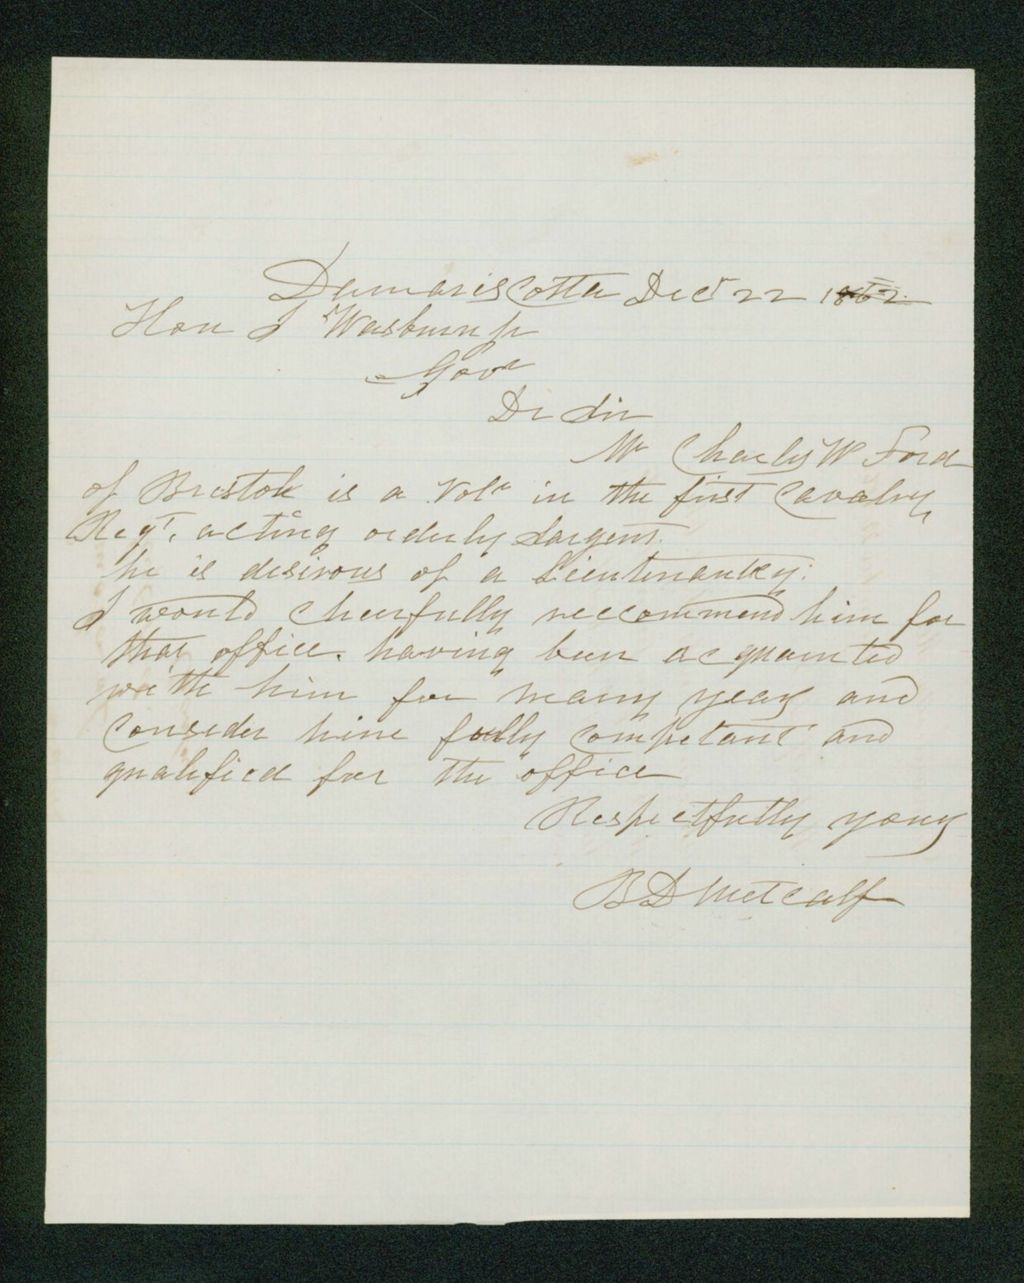 Damariscotta Decr 22 1862
Hon I Wasburn jr
Govr
Dr Sir
Mr Charles W Ford
of Bristol is a Volr in the first Cavalry
Regt. acting orderly Sargent.
he is desirous of a Lieutenantcy.
I would cheerfully reccommend him for
that office. having been acquainted
with him for many years and
consider him fully competant and
qualified for the office
Respectfully yours
B D Metcalf